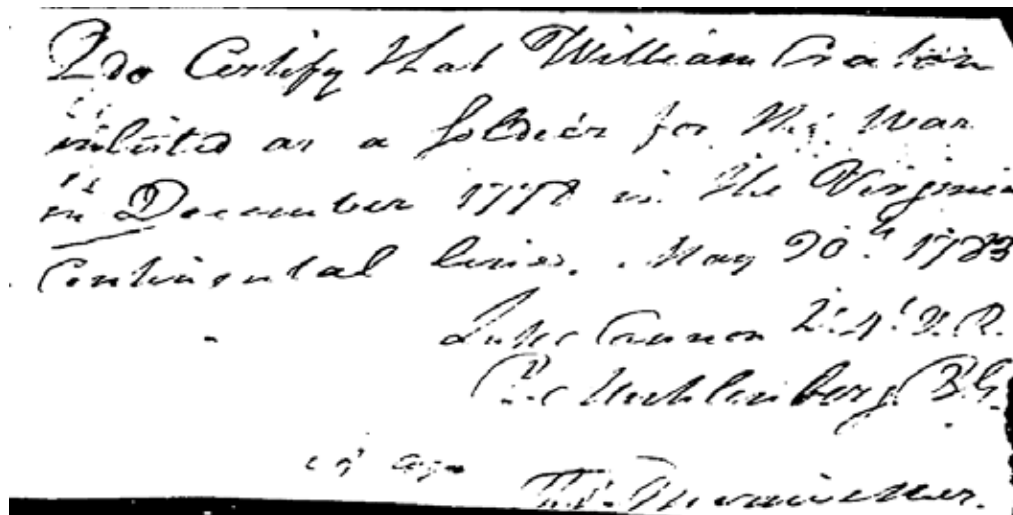 I do Certify that William Craton
inlisted as a Soldier for the War
in December 1777 in the Virginia
Continental line. May 20th 1783
Luke Cannon Lt. V.R.
P. Muhlenberg B.G.